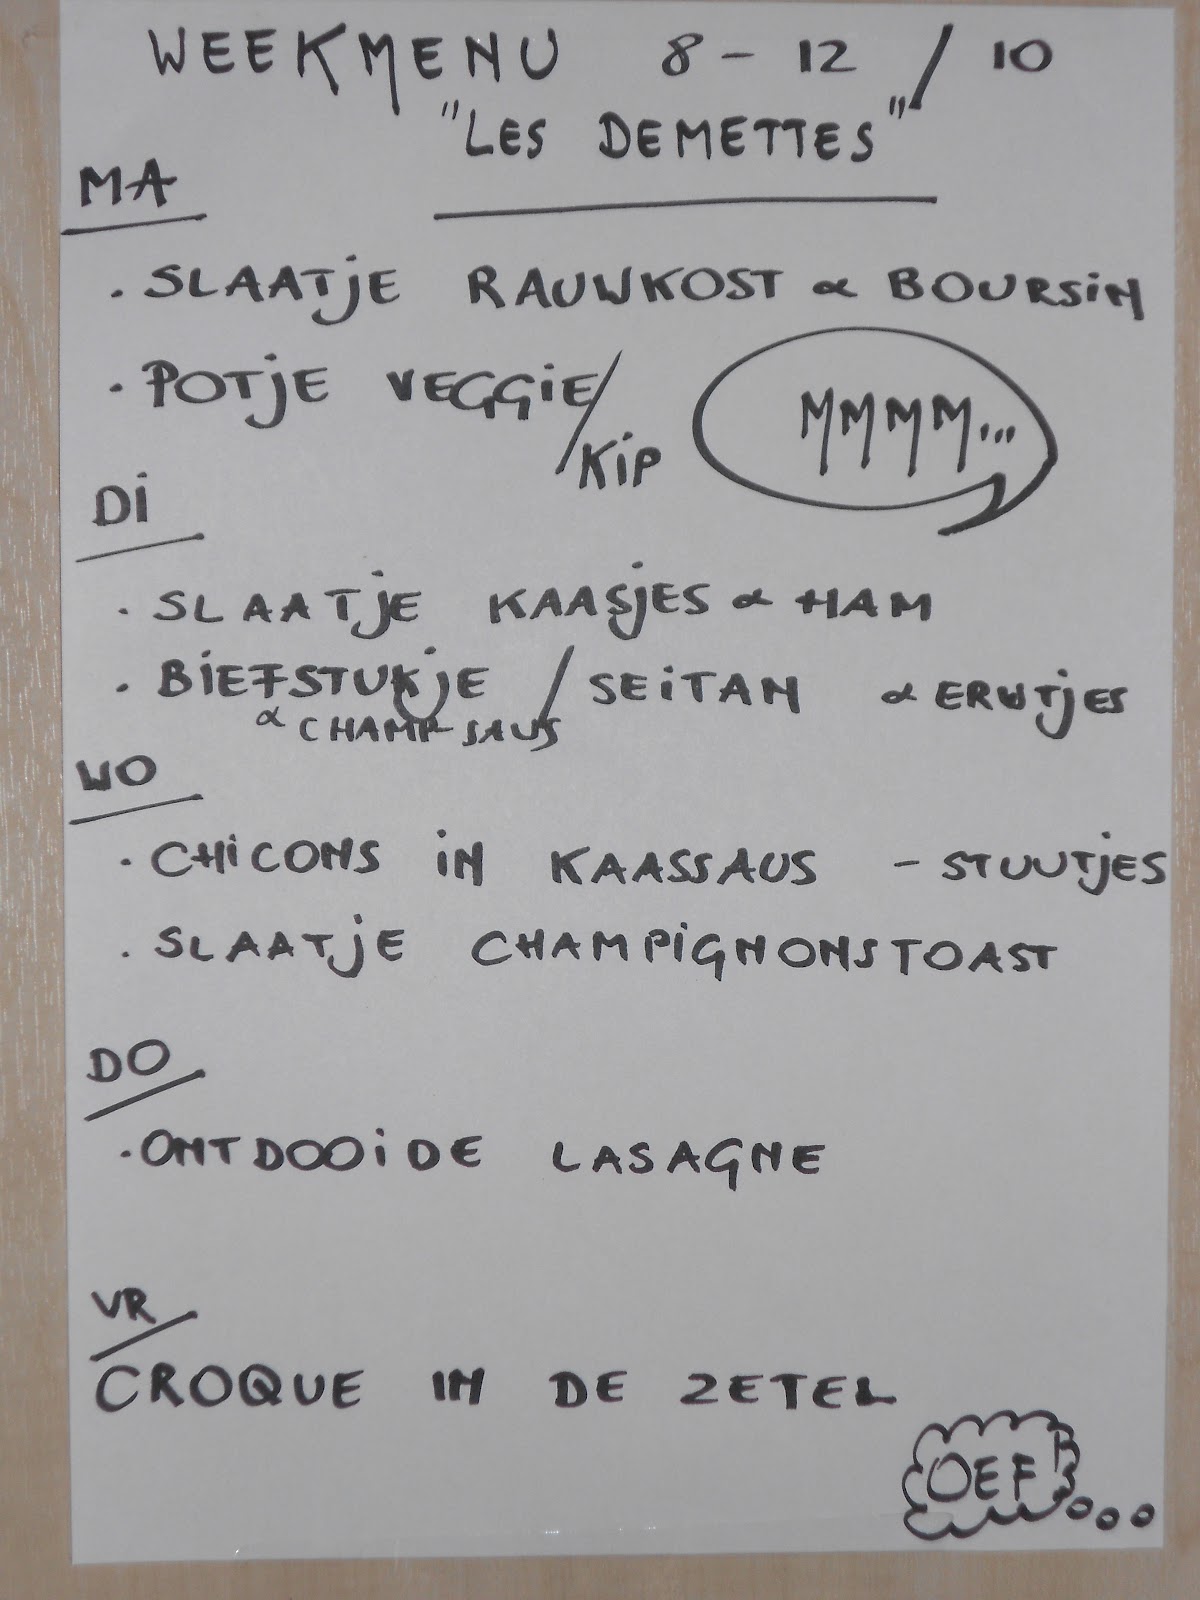 WEEKMENU 8 - 12 / 10
"LES DEMETTES"
MA
. SLAATJE RAUWKOST & BOURSIN
. POTJE VEGGIE/
KIP
MMMM...
DI
. SLAATJE KAASJES & HAM
. BIEFSTUKJE / SEITAN & ERWTJES
& CHAMP SAUS
WO
. CHICONS IN KAASSAUS - STUUTJES
. SLAATJE CHAMPIGNONSTOAST
DO
. ONTDOOIDE LASAGNE
VR
CROQUE IN DE ZETEL
OEF!